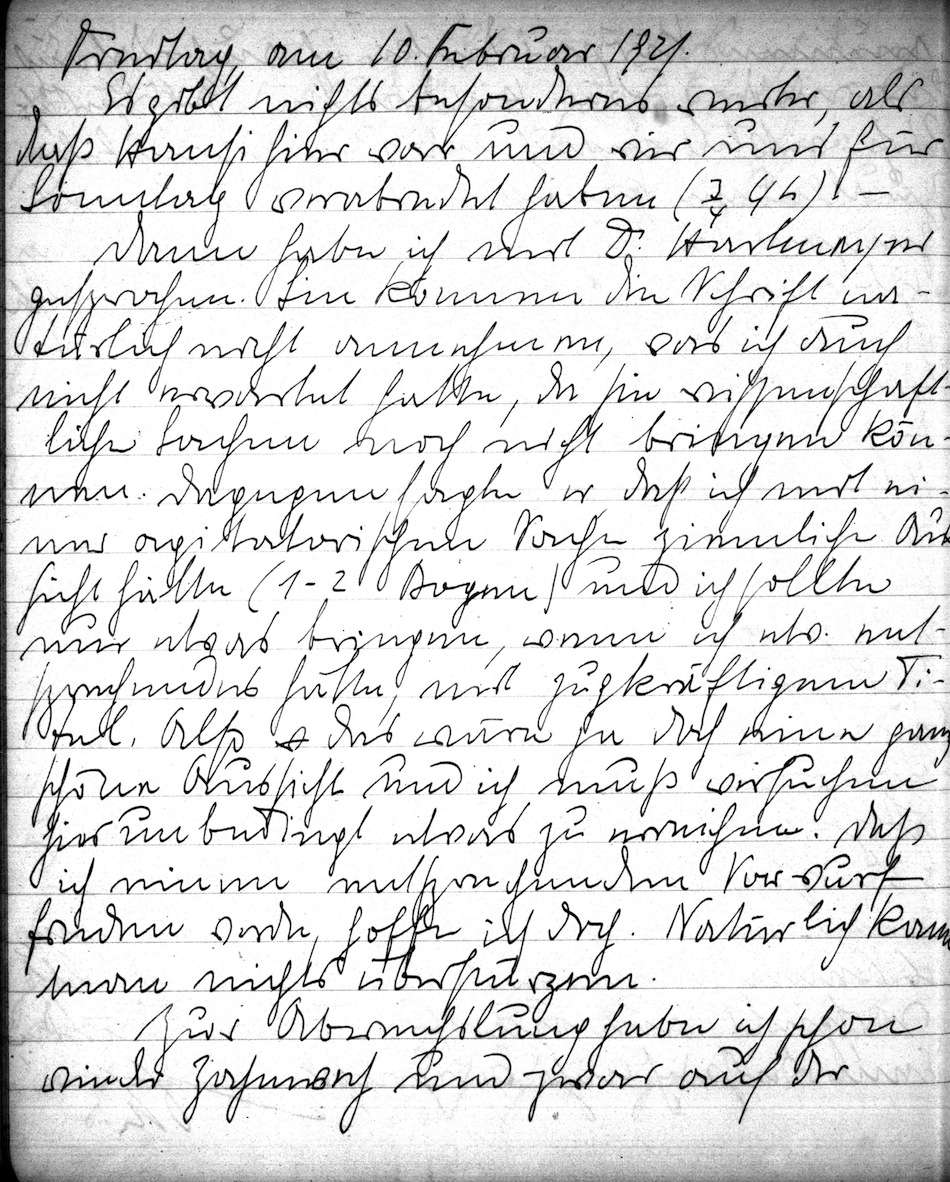 Freitag, am 10. Februar 1921.
Es gibt nichts besonderes weiter, als
daß Hansi hier war und wir uns für
Sonntag verabredet haben (¾ 4h). –
Dann habe ich mit Dr. Hartmeyer
gesprochen. Sie können die Schrift na-
türlich nicht annehmen, was ich auch
nicht erwartet hatte, da sie wissenschaft-
liche Sachen noch nicht bringen kön-
nen. Dagegen sagte er daß ich mit ei-
ner agitatorischen Sache ziemliche Aus
sicht hätte (1-2 Bogen) und ich sollte
nur etwas bringen, wenn ich etw. ent-
sprechendes hätte, mit zugkräftigem Ti-
tel. Also das wäre ja doch eine ganz
schöne Aussicht und ich muß versuchen
hier unbedingt etwas zu erreichen. Daß
ich einen entsprechenden Vorwurf
finden werde, hoffe ich doch. Natürlich kann
man nichts überstürzen.
Zur Abwechslung habe ich schon
wieder Zahnweh und zwar auf der